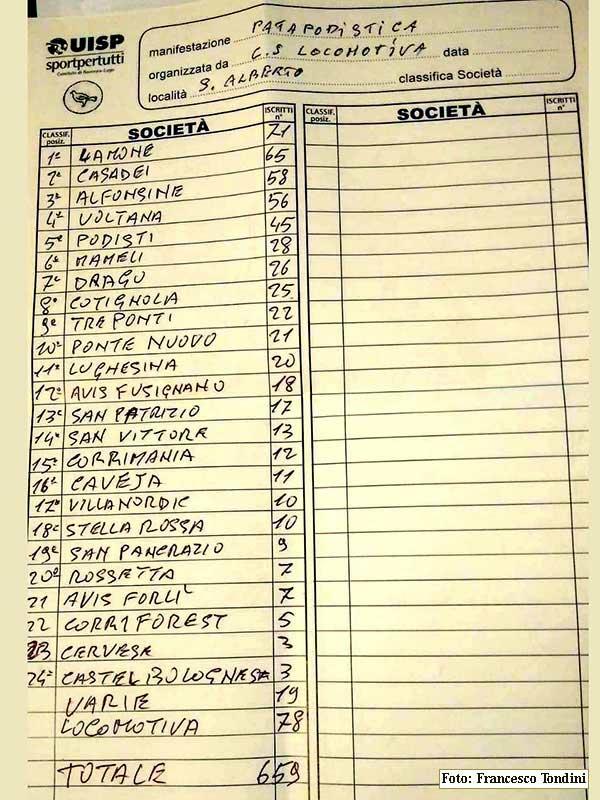 UISP
sportpertutti
Comitato di Ravenna-Lugo
manifestazione PATAPODISTICA
organizzata da C.S LOCOMOTIVA data
località S. ALBERTO classifica Società
CLASSIF. posiz. SOCIETÀ ISCRITTI n° CLASSIF. posiz. SOCIETÀ ISCRITTI n°
1ª LAMONE 71
2ª CASADEI 65
3ª ALFONSINE 58
4ª VOLTANA 56
5ª PODISTI 45
6ª MAMELI 28
7ª DRAGO 26
8ª COTIGNOLA 25
9ª TRE PONTI 22
10ª PONTE NUOVO 21
11ª LUGHESINA 20
12ª AVIS FUSIGNANO 18
13ª SAN PATRIZIO 17
14ª SAN VITTORE 13
15ª CORRIMANIA 12
16ª CAVEJA 11
17ª VILLANORDIC 10
18ª STELLA ROSSA 10
19ª SAN PANCRAZIO 9
20ª ROSSETTA 7
21 AVIS FORLÌ 7
22 CORRIFOREST 5
23 CERVESE 3
24ª CASTEL BOLOGNESE 3
VARIE 19
LOCOMOTIVA 78
TOTALE 659
Foto: Francesco Tondini